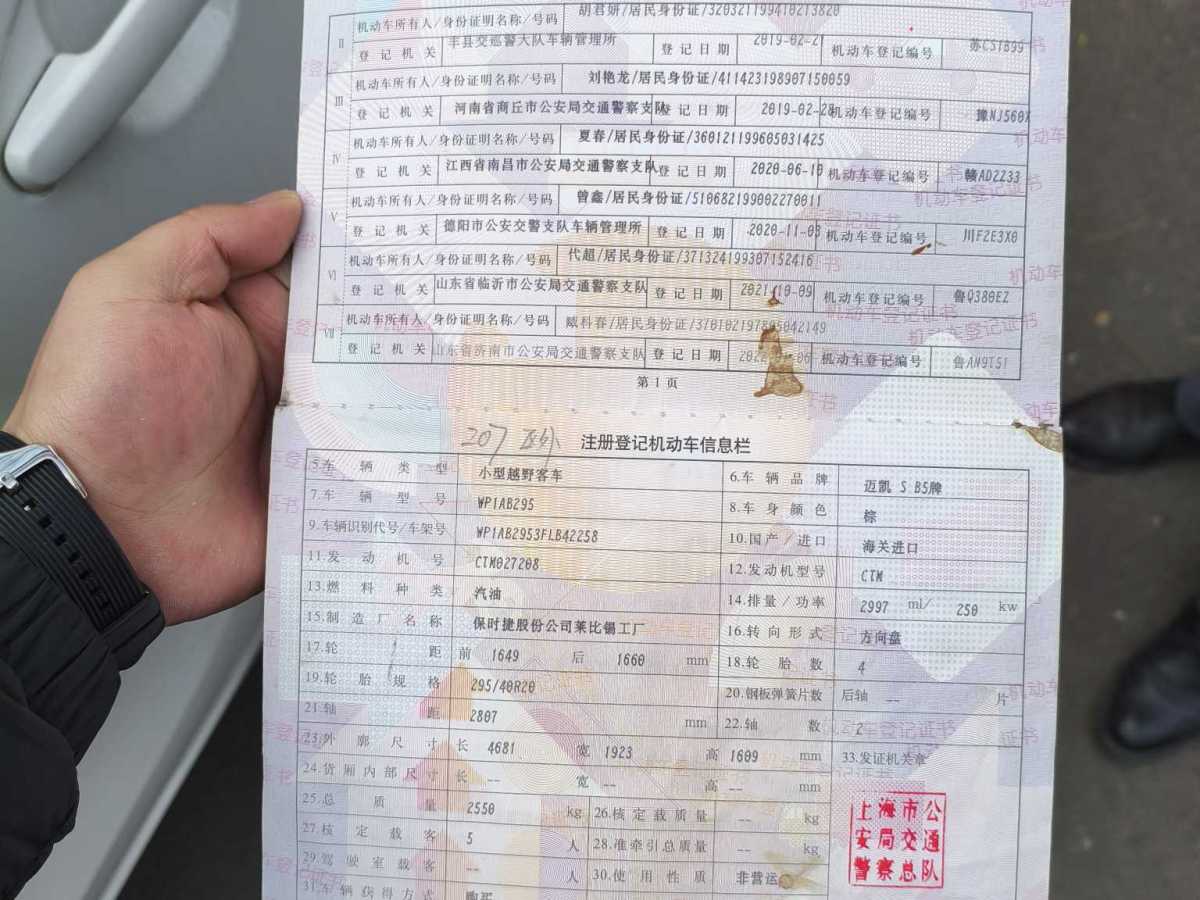 II 机动车所有人/身份证明名称/号码 胡君妍/居民身份证/320321199410213820
登记机关 丰县交巡警大队车辆管理所 登记日期 2019-02-21 机动车登记编号 苏CSTB99
III 机动车所有人/身份证明名称/号码 刘艳龙/居民身份证/411423198907150059
登记机关 河南省商丘市公安局交通警察支队 登记日期 2019-02-28 机动车登记编号 豫NJ560X
IV 机动车所有人/身份证明名称/号码 夏春/居民身份证/360121199605031425
登记机关 江西省南昌市公安局交通警察支队 登记日期 2020-06-10 机动车登记编号 赣AD2Z33
V 机动车所有人/身份证明名称/号码 曾鑫/居民身份证/510682199002270011
登记机关 德阳市公安交警支队车辆管理所 登记日期 2020-11-03 机动车登记编号 川F2E3X0
VI 机动车所有人/身份证明名称/号码 代超/居民身份证/371324199307152416
登记机关 山东省临沂市公安局交通警察支队 登记日期 2021-10-09 机动车登记编号 鲁Q380EZ
VII 机动车所有人/身份证明名称/号码 臧科春/居民身份证
登记机关 山东省济南市公安局交通警察支队 登记日期 机动车登记编号 鲁AN9T51
第1页
207
注册登记机动车信息栏
5.车辆类型 小型越野客车 6.车辆品牌 迈凯 S B5牌
7.车辆型号 WP1AB295 8.车身颜色 棕
9.车辆识别代号/车架号 WP1AB2953FLB42258 10.国产/进口 海关进口
11.发动机号 CTM027208 12.发动机型号 CTM
13.燃料种类 汽油 14.排量/功率 2997 ml/ 250 kw
15.制造厂名称 保时捷股份公司莱比锡工厂 16.转向形式 方向盘
17.轮距 前 1649 后 1660 mm 18.轮胎数 4
19.轮胎规格 295/40R20 20.钢板弹簧片数 后轴 -- 片
21.轴距 2807 mm 22.轴数 2
23.外廓尺寸 长 4681 宽 1923 高 1609 mm 33.发证机关章
24.货厢内部尺寸 长 -- 宽 -- 高 -- mm
25.总质量 2550 kg 26.核定载质量 -- kg
27.核定载客 5 人 28.准牵引总质量 -- kg
29.驾驶室载客 -- 人 30.使用性质 非营运
31.车辆获得方式 购买
上海市公
安局交通
警察总队